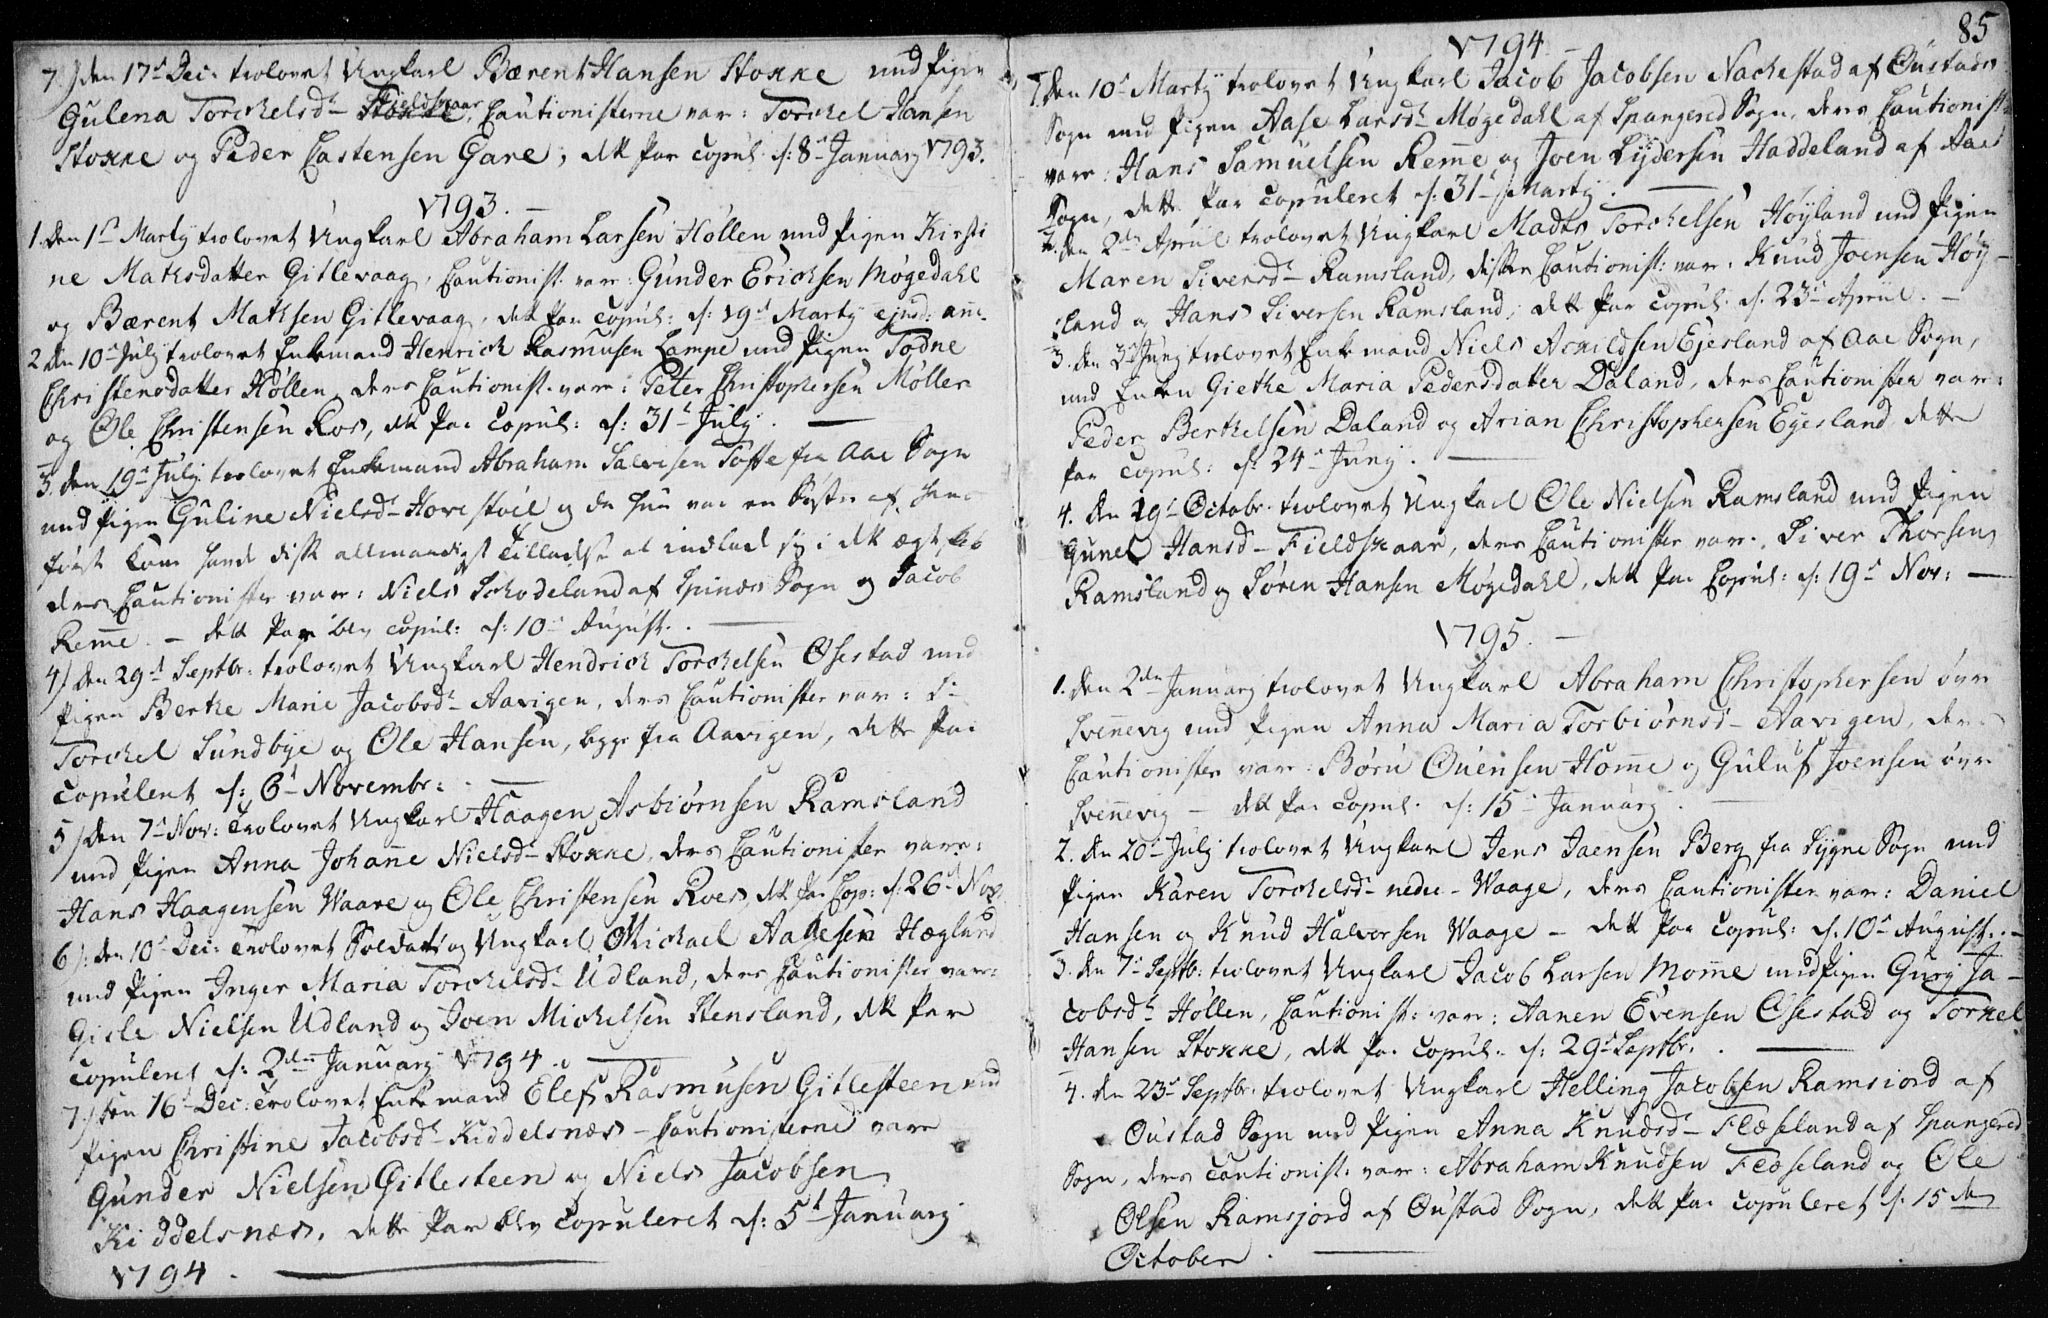 7.) den 17d Dec: trolovet Ungkarl Bærent Hansen Stokke med Pigen
Gulena Torckelsd. Stokke Fieldskaar, Cautionisterne var: Torckel Hansen
Stokke og Peder Castensen Gare, dette Par copul. d: 8d January 1793.
1793. —
1. den 1st Marty trolovet Ungkarl Abraham Larsen Høllen med Pigen Kirsti
ne Mathsdatter Gitlevaag, Cautionist. var: Gunder Erichsen Møgedahl
og Bærent Mathsen Gitlevaag, dette Par copul: d: 19d Marty ejusd: ann:
2 den 10d July trolovet Enkemand Henrich Rasmusen Lampe med Pigen Todne
Christensdatter Høllen, deres Cautionist. var: Peter Christophersen Møller
og Ole Christensen Ros, dette Par copul: d: 31d July. —
3. den 19d July trolovet Enkemand Abraham Salvesen Toffte fra Aae Sogn
med Pigen Guline Nielsd. Hovestøel og da hun var en af hans
først Kone havde disse allernaadigst Tilladelse at indlade sig i dette ægteskab
deres Cautionister var: Niels Schodeland af Spinds Sogn og Jacob
Remme. — dette Par blev copul: d: 10d August. —
4) den 29d Septbr: trolovet Ungkarl Hendrick Torckelsen Øsestad med
Pigen Berthe Marie Jacobsd. Aavigen, deres Cautionister var:
Torckel Sundbye og Ole Hansen, begge fra Aavigen, dette Par
copuleret d: 6d Novembr: —
5) den 7d Nov: trolovet Ungkarl Haagen Asbiørnsen Ramsland
med Pigen Anna Johanne Nielsd. Stokke, deres Cautionister vare:
Hans Haagensen Waare og Ole Christensen Roes, dette Par Cop: d: 26d Nov.
6): den 10d Dec: trolovet Soldat og Ungkarl Michael Aanesen Hæglund
med Pigen Inger Maria Torckelsd. Udland, deres Cautionister vare:
Gisle Nielsen Udland og Joen Michelsen Stensland, dette Par
copuleret d: 2den January 1794. —
7.) den 16d Dec: trolovet Enkemand Elef Rasmusen Gitlesteen med
Pigen Christine Jacobsd. Kiddelsnæs — Cautionisterne vare
Gunder Nielsen Gitlesteen og Niels Jacobsen
Kiddelsnæs, dette Par blev copuleret d: 5d January
1794. —
85
1794
1. den 10d Marty trolovet Ungkarl Jacob Jacobsen Nackestad af Oustad
Sogn med Pigen Aase Larsd. Møgedahl af Spangered Sogn, deres Cautionist:
vare: Hans Samuelsen Remme og Joen Lydersen Haddeland af Aae
Sogn, dette Par copuleret d. 31d Marty. —
2. den 2den April trolovet Ungkarl Madts Torckelsen Høyland med Pigen
Maren Siversd. Ramsland, disse Cautionist: var: Knud Joensen Høy-
land og Hans Siversen Ramsland, dette Par copul: d. 23d April. —
3. den 3d Juny trolovet Enkemand Niels Askildsen Ejesland af Aae Sogn,
med Enken Giethe Maria Pedersdatter Daland, deres Cautionister var:
Peder Berthelsen Daland og Arian Christophersen Egesland, dette
Par copul: d: 24d Juny. —
4. den 29d Octobr. trolovet Ungkarl Ole Nielsen Ramsland med Pigen
Gunel Hansd. Fieldskaar, deres Cautionister var: Siver Thorsen
Ramsland og Søren Hansen Møgedahl, dette Par Copul: d: 19d Nov: —
1795. —
1. den 2den January trolovet Ungkarl Abraham Christophersen øvre
Svennevig med Pigen Anna Maria Torbiørnsd. Aavigen, deres
Cautionister var: Børu Ouensen Homme og Guluf Joensen øvre
Svennevig — dette Par copul. d: 15d January. —
2. den 20d July trolovet Ungkarl Jens Jaensen Berg fra Lygne Sogn med
Pigen Karen Torckelsd. nedre Waage, deres Cautionister var: Daniel
Hansen og Knud Halvorsen Waage — dette Par copul: d: 10d August. —
3. den 7d Septb: trolovet Ungkarl Jacob Larsen Momme med Pigen Gury Ja-
cobsd. Høllen, Cautionist: var: Aanen Evensen Øsestad og Torkel
Hansen Stokke, dette Par copul. d: 29d Septbr. —
4. den 23d Septbr. trolovet Ungkarl Helling Jacobsen Ramsiord af
Oustad Sogn med Pigen Anna Knudsd. Fleseland af Spangered
Sogn, deres Cautionist: var: Abraham Knudsen Fleseland og Ole
Olsen Ramsjord af Oustad Sogn, dette Par copuleret d. 15de
October. —